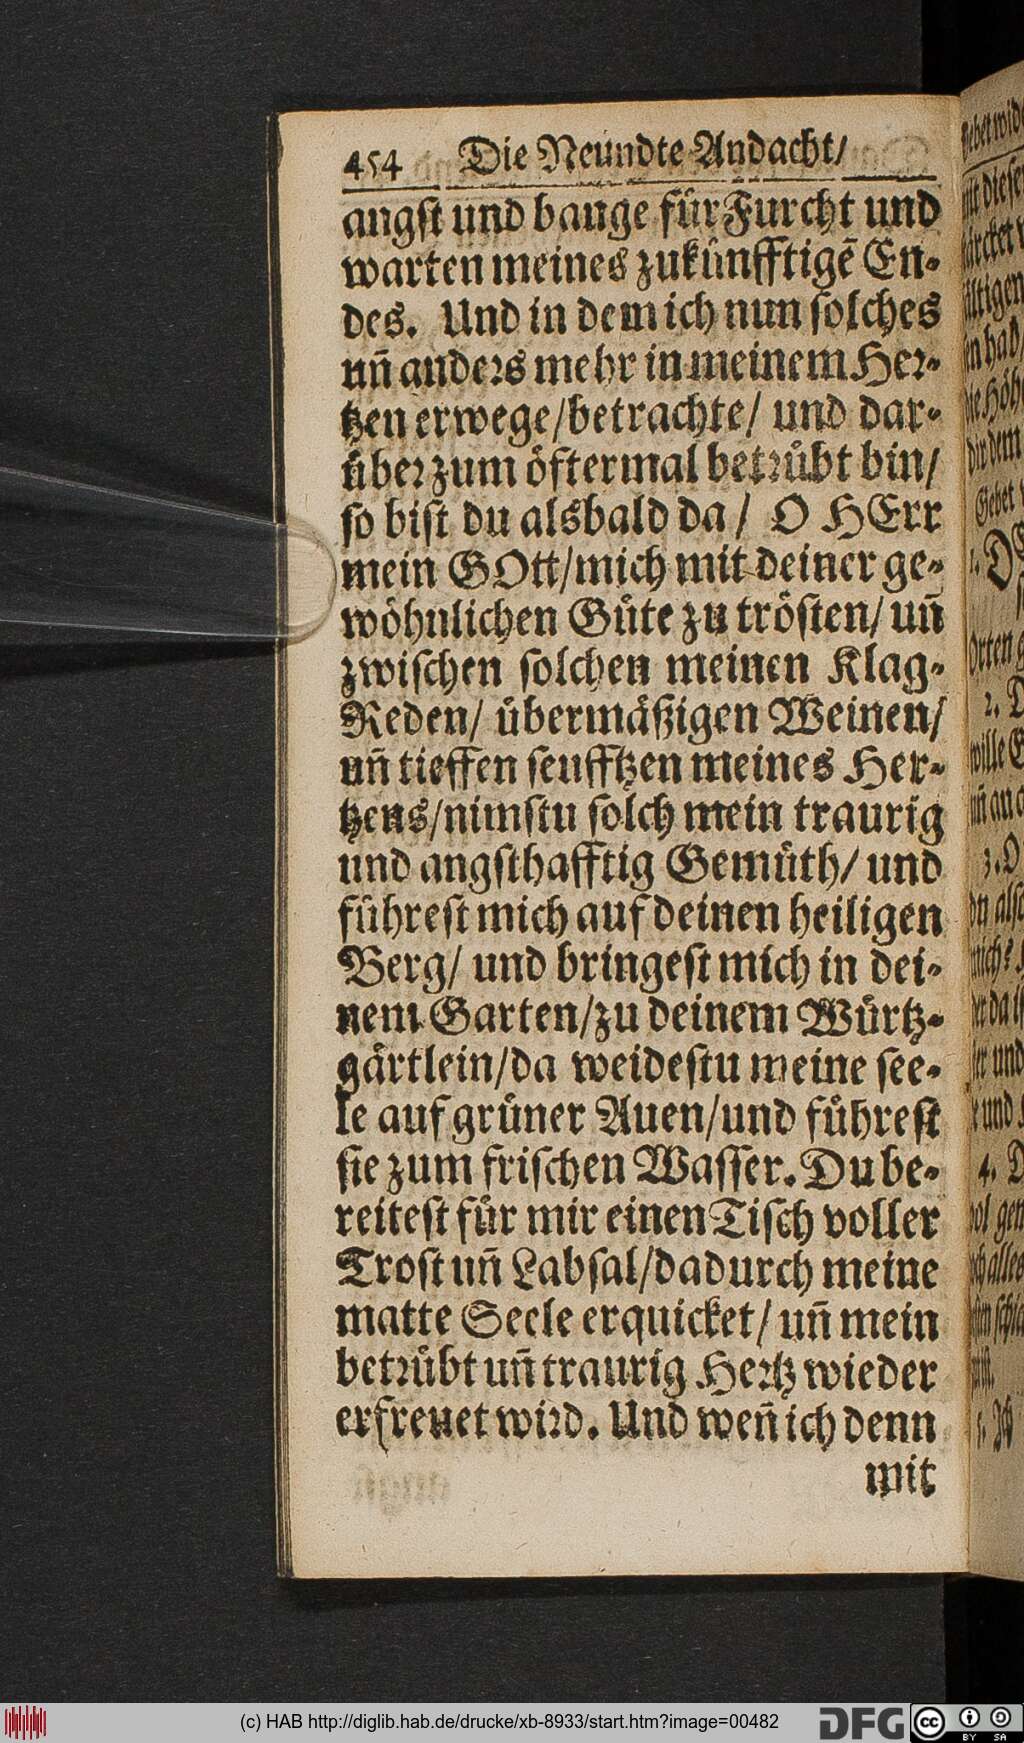 454 Die Neundte Andacht/
angst und bange für Furcht und
warten meines zukünfftigẽ En-
des. Und in dem ich nun solches
uñ anders mehr in meinem Her-
tzen erwege/betrachte/ und dar-
über zum öftermal betrübt bin/
so bist du alsbald da/ O HErr
mein GOtt/mich mit deiner ge-
wöhnlichen Güte zu trösten/ uñ
zwischen solchen meinen Klag-
Reden/ übermäßigen Weinen/
uñ tieffen seufftzen meines Her-
tzens/nimstu solch mein traurig
und angsthafftig Gemüth/ und
führest mich auf deinen heiligen
Berg/ und bringest mich in dei-
nem Garten/zu deinem Würtz-
gärtlein/da weidestu meine see-
le auf grüner Auen/und führest
sie zum frischen Wasser. Du be-
reitest für mir einen Tisch voller
Trost uñ Labsal/dadurch meine
matte Seele erquicket/ uñ mein
betrübt uñ traurig Hertz wieder
erfreuet wird. Und weñ ich denn
mit
(c) HAB http://diglib.hab.de/drucke/xb-8933/start.htm?image=00482
DFG
cc BY SA